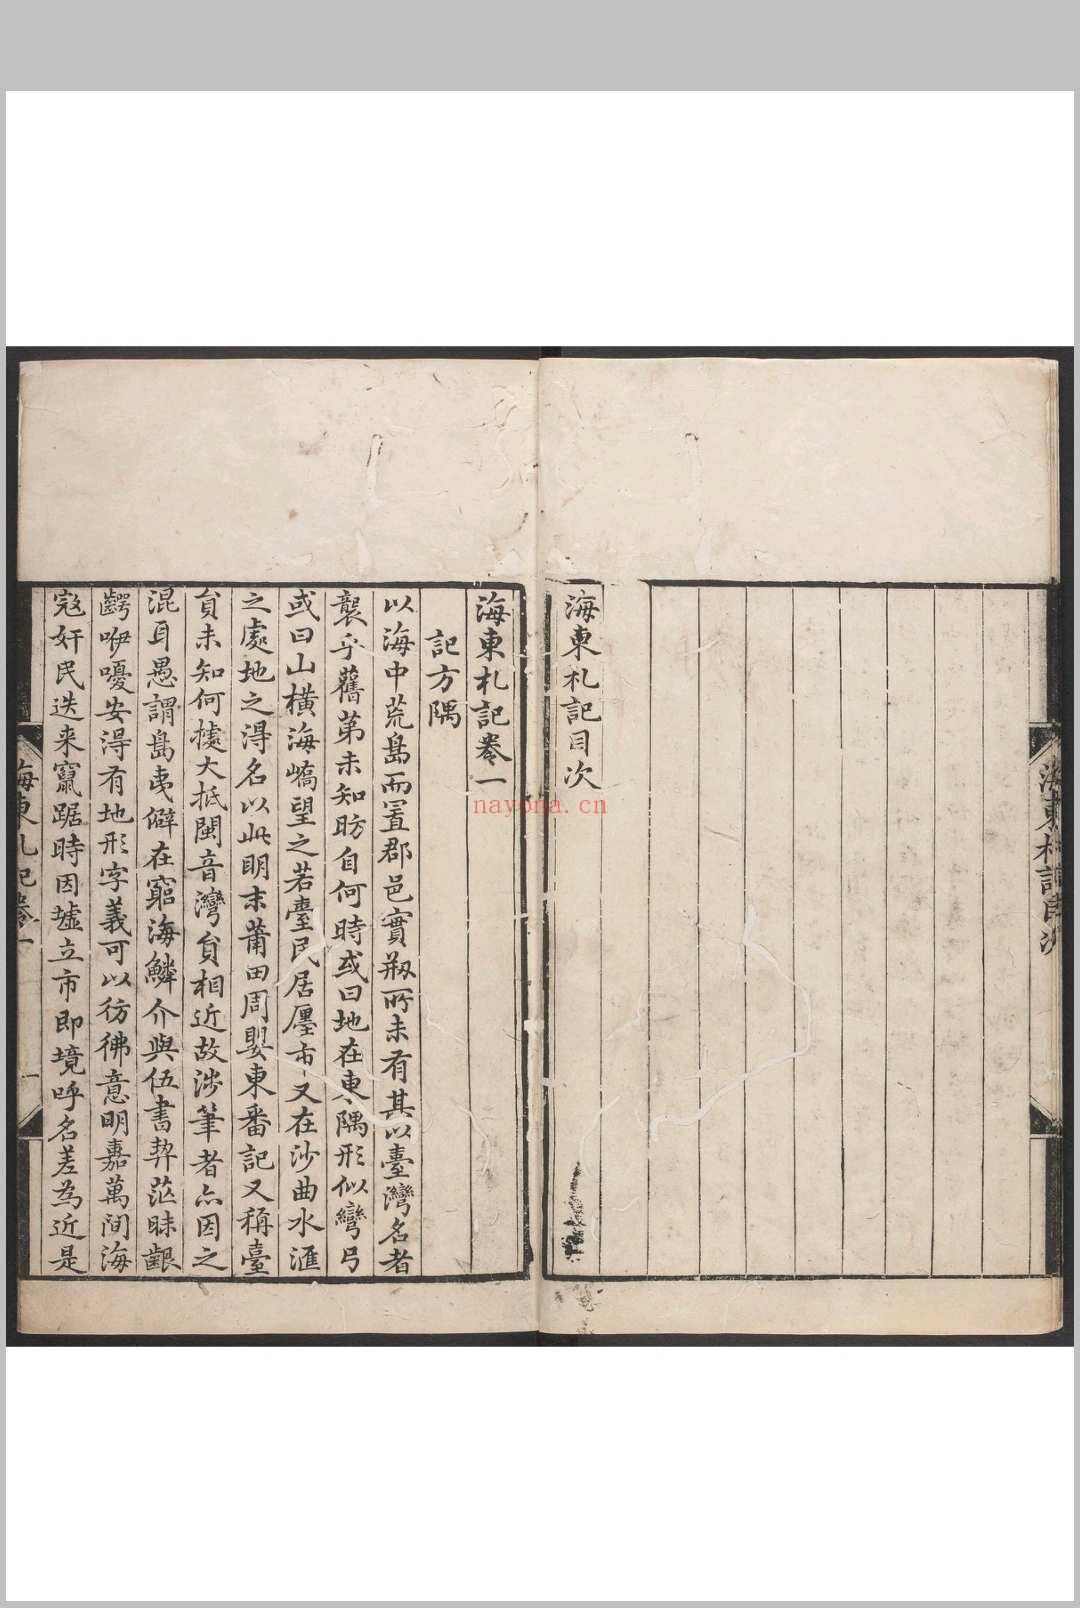 海東札記目次
海東札記卷一
記方隅
以海中荒島而置郡邑實剏所未有其以臺灣名者
襲乎舊第未知昉自何時或曰地在東隅形似彎弓
或曰山橫海嶠望之若臺民居廛市又在沙曲水滙
之處地之得名以此明末莆田周嬰東番記又稱臺
員未知何據大抵閩音灣員相近故涉筆者亦因之
混耳愚謂島夷僻在窮海鱗介與伍書契茫昧齦
齶咿嚘安得有地形字義可以彷彿意明嘉萬間海
寇奸民迭来竄踞時因墟立市即境呼名差為近是
海東札記卷一
海東札記目次
nayona.cn